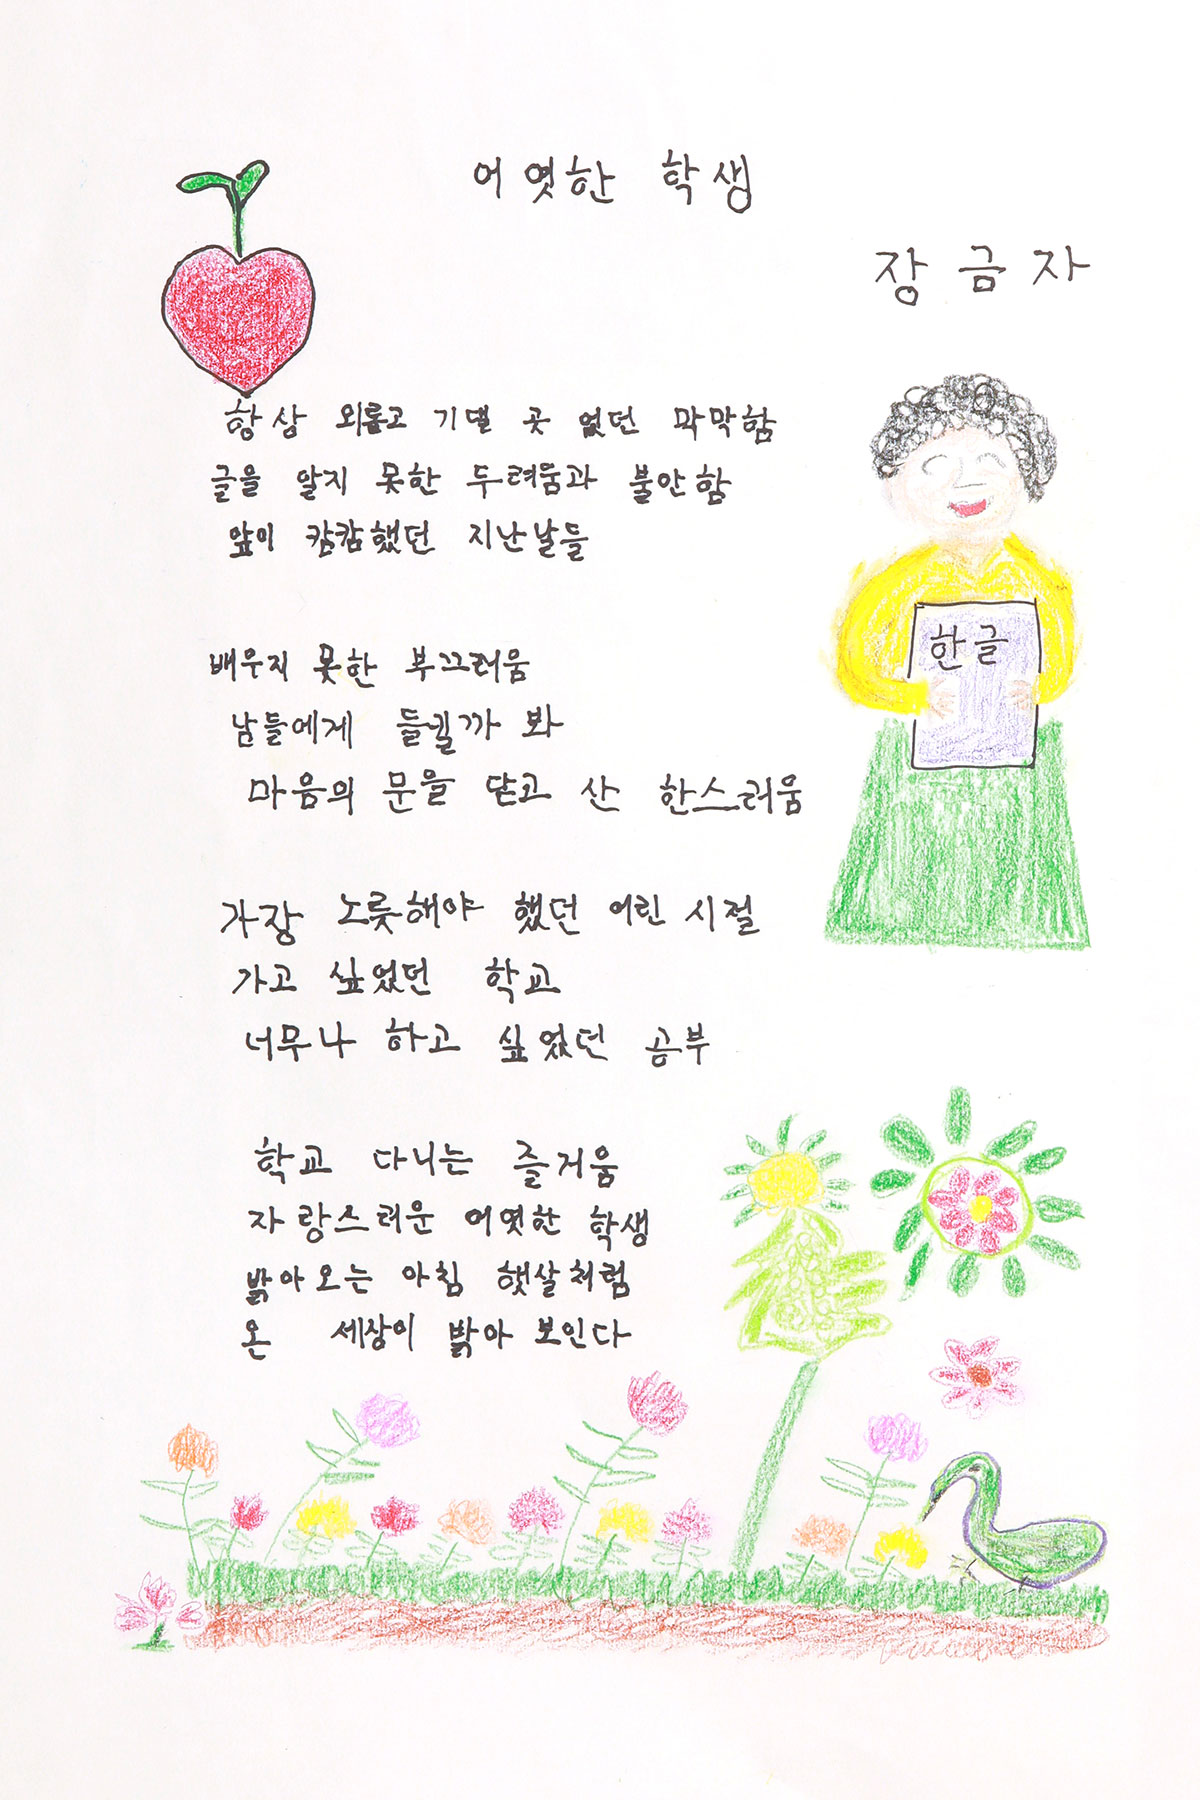 어엿한 학생
장금자
항상 외롭고 기댈 곳 없던 막막함
글을 알지 못한 두려움과 불안함
앞이 캄캄했던 지난날들
한글
배우지 못한 부끄러움
남들에게 들킬까 봐
마음의 문을 닫고 산 한스러움
가장 노릇해야 했던 어린 시절
가고 싶었던 학교
너무나 하고 싶었던 공부
학교 다니는 즐거움
자랑스러운 어엿한 학생
밝아오는 아침 햇살처럼
온 세상이 밝아 보인다